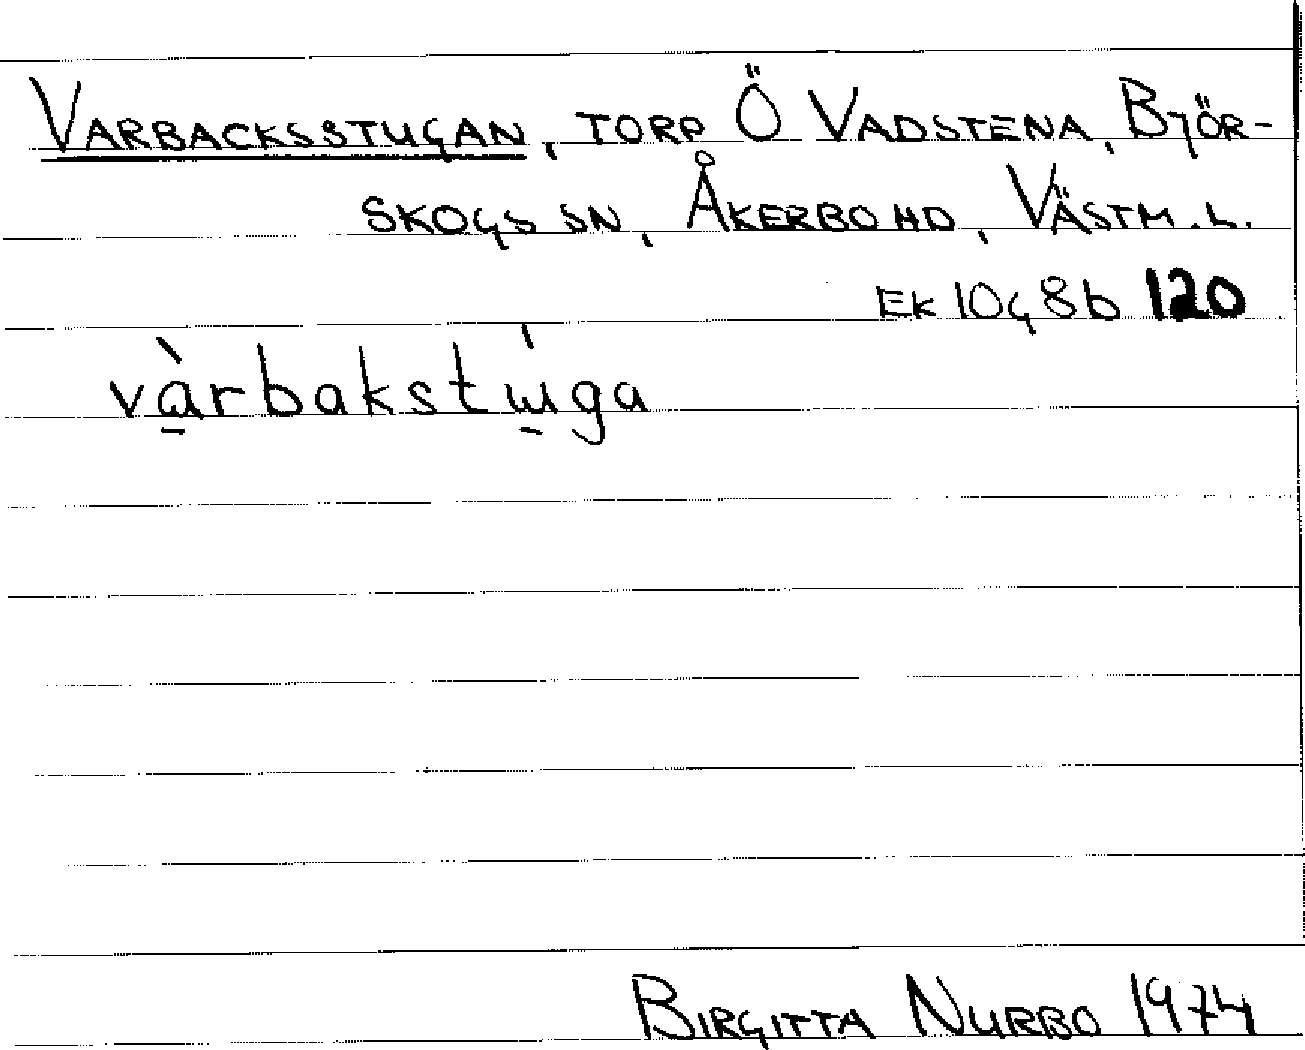 VARBACKSSTUGAN, TORP Ö VADSTENA, BJÖR-
SKOGS SN, ÅKERBO HD, VÄSTM. L.
EK 10G 8b 120
vàrbakstɯ́ga
BIRGITTA NURBO 1974